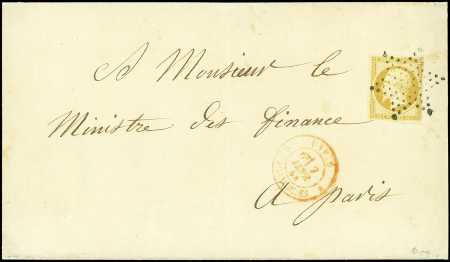 A Monsieur le
Ministre des finance
PARIS
A paris